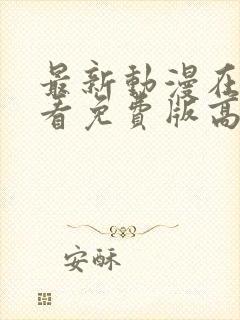 最新動漫在
看免費版高
安酥